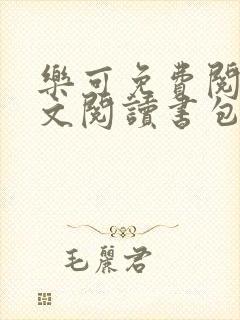 樂可免費閱
文閱讀書包
毛麗君